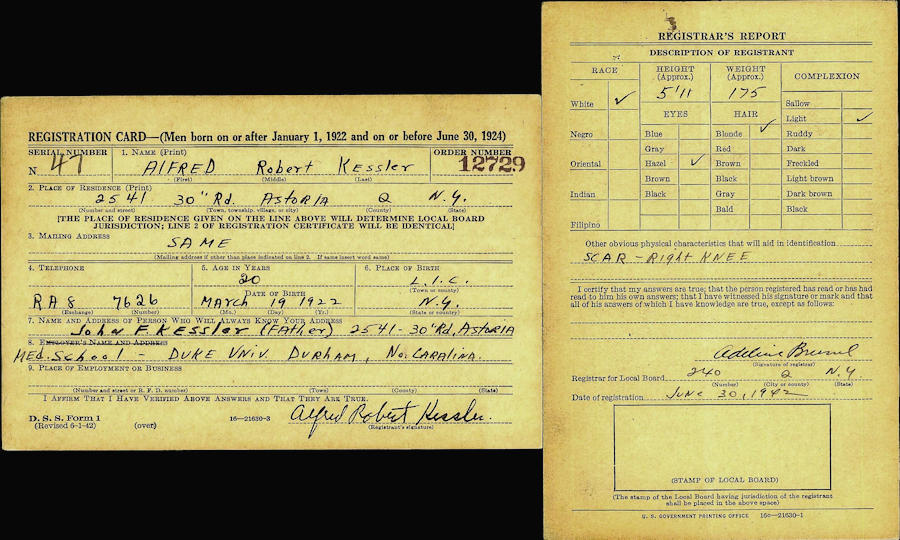 REGISTRATION CARD—(Men born on or after January 1, 1922 and on or before June 30, 1924)
SERIAL NUMBER 1. NAME (Print) ORDER NUMBER
N 47 AlFRED Robert Kessler 12729
(First) (Middle) (Last)
2. PLACE OF RESIDENCE (Print)
2541 30" Rd. ASTORIA Q N.Y.
(Number and street) (Town, township, village, or city) (County) (State)
[THE PLACE OF RESIDENCE GIVEN ON THE LINE ABOVE WILL DETERMINE LOCAL BOARD
JURISDICTION; LINE 2 OF REGISTRATION CERTIFICATE WILL BE IDENTICAL]
3. MAILING ADDRESS
SAME
(Mailing address if other than place indicated on line 2. If same insert word same)
4. TELEPHONE 5. AGE IN YEARS 6. PLACE OF BIRTH
20 L.I.C.
DATE OF BIRTH (Town or county)
RA 8 7626 MARCH 19 1922 N.Y.
(Exchange) (Number) (Mo.) (Day) (Yr.) (State or country)
7. NAME AND ADDRESS OF PERSON WHO WILL ALWAYS KNOW YOUR ADDRESS
John F. KESSler (FATHer) 2541-30" Rd, ASTORIA
8. EMPLOYER'S NAME AND ADDRESS
MED. School - DUKE UNIV. DURHAM, No. CARALINA.
9. PLACE OF EMPLOYMENT OR BUSINESS
(Number and street or R. F. D. number) (Town) (County) (State)
I AFFIRM THAT I HAVE VERIFIED ABOVE ANSWERS AND THAT THEY ARE TRUE.
D. S. S. Form 1 16—21630-3 Alfred Robert Kessler.
(Revised 6-1-42) (over) (Registrant's signature)
REGISTRAR'S REPORT
DESCRIPTION OF REGISTRANT
RACE HEIGHT (Approx.) WEIGHT (Approx.) COMPLEXION
5'11 175
White ✓ EYES HAIR Sallow
Light ✓
Negro Blue Blonde ✓ Ruddy
Gray Red Dark
Oriental Hazel ✓ Brown Freckled
Brown Black Light brown
Indian Black Gray Dark brown
Bald Black
Filipino
Other obvious physical characteristics that will aid in identification
SCAR - Right KNEE
I certify that my answers are true; that the person registered has read or has had
read to him his own answers; that I have witnessed his signature or mark and that
all of his answers of which I have knowledge are true, except as follows:
Adeline
(Signature of registrar)
Registrar for Local Board 240 Q N.Y
(Number) (City or county) (State)
Date of registration JUNE 30, 1942
(STAMP OF LOCAL BOARD)
(The stamp of the Local Board having jurisdiction of the registrant
shall be placed in the above space)
U. S. GOVERNMENT PRINTING OFFICE 16c—21630-1